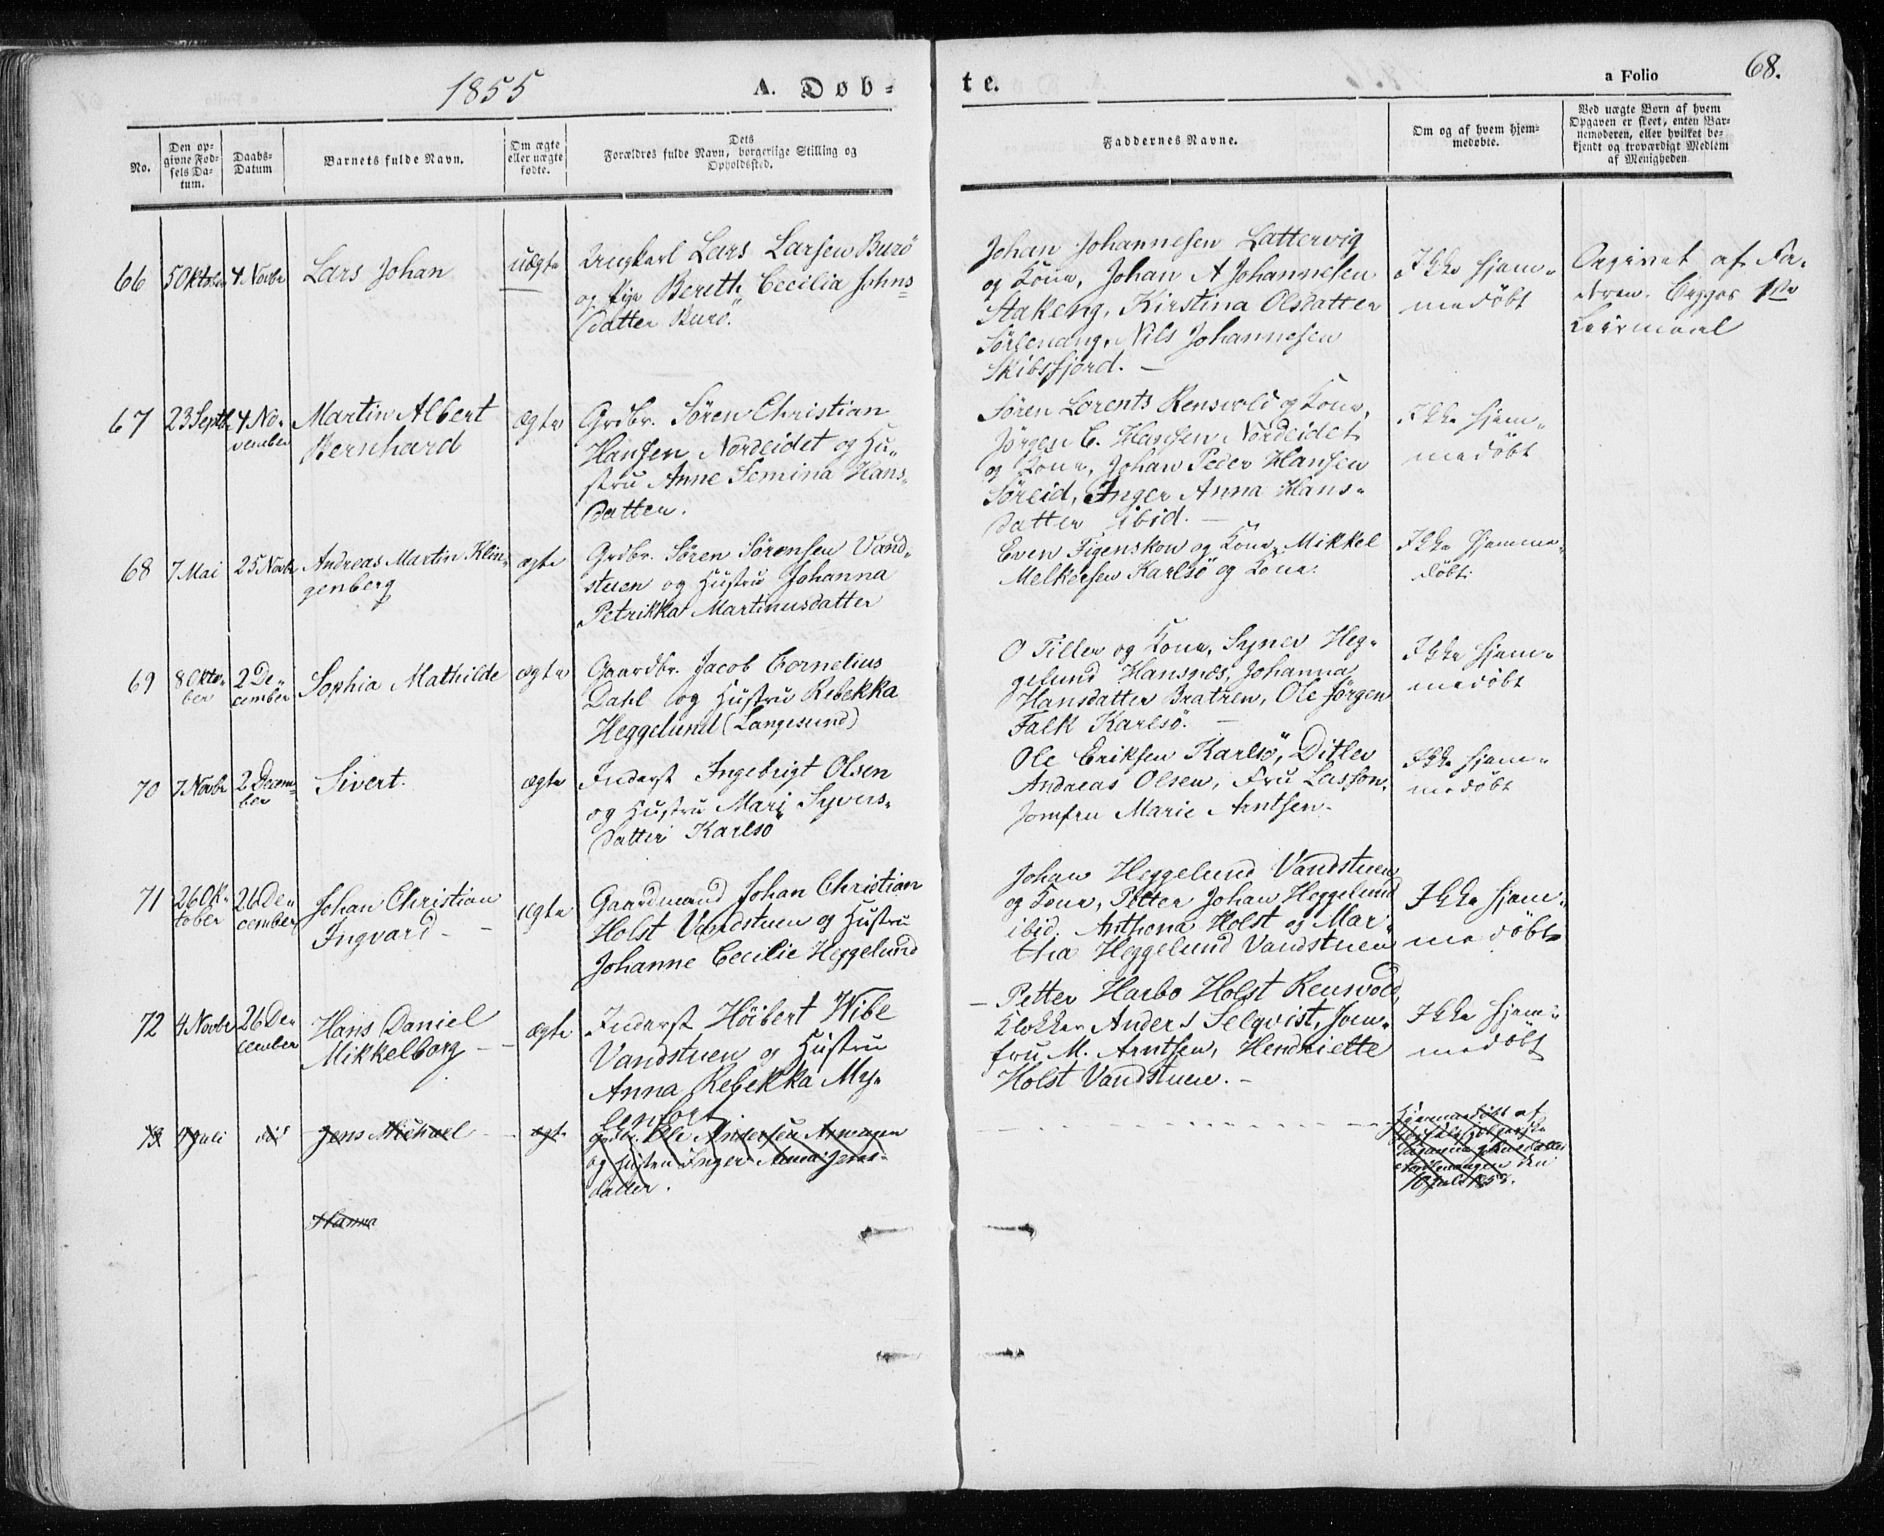 1855
A. Døb-
te.
a Folio
68.
No.
Den op-
givne Fød-
sels Da-
tum.
Daabs-
Datum
Barnets fulde Navn.
Om ægte
eller uægte
fødte.
Dets
Forældres fulde Navn, borgerlige Stilling og
Opholdssted.
Faddernes Navne.
Om og af hvem hjem-
medøbte.
Ved uægte Børn af hvem
Opgaven er skeet, enten Bar-
nemoderen, eller hvilket be-
kjendt og troværdigt Medlem
af Menigheden
66
5 Oktober
4 Novbr
Lars Johan
uægte
Ungkarl Lars Larsen Burö
og Pige Bereth Cecilia Johns-
datter Burö.
Johan Johannesen Lattervig
og Kone, Johan A Johannesen
Stakeng, Kirstina Olsdatter
Sørlenang, Nils Johannesen
Skibsfjord. —
Ikke hjem-
medøbt
Opgivet af Fa-
deren. Begges 1ste
Leiermaal
67
23 Septb
4 No-
vember
Martin Albert
Bernhard
ægte
Grdbr. Søren Christian
Hansen Nordeidet og Hu-
stru Anne Semina Hans-
datter.
Søren Lorents Rensvold og Kone,
Jörgen C. Hansen Nordeidet
og Kone, Johan Peder Hansen
Søreid, Inger Anna Hans-
datter ibid. —
Ikke hjem-
medøbt
68
7 Mai
25 Novbr
Andreas Martin Klin-
genberg
ægte
Grdbr. Søren Sørensen Vand-
stuen og Hustru Johanna
Petrikka Martinusdatter
Even Figenskou og Kone, Mikkel
Melkersen Karlsö og Kone.
Ikke hjemme-
døbt.
69
8 Okto-
ber
2 De-
cember
Sophia Mathilde
ægte
Gaardbr. Jacob Cornelius
Dahl og Hustru Rebekka
Heggelund (Langesund)
O Tiller og Kone, Syner Heg-
gelund Hansnæs, Johanna
Hansdatter Bratren, Ole Jörgen
Falk Karlsö. —
Ikke hjem-
medøbt
70
7 Novbr
2 Decem-
ber
Sivert.
ægte
Inderst Ingebrigt Olsen
og Hustru Mari Syvers-
datter Karlsö
Ole Eriksen Karlsö, Ditlev
Andreas Olsen, Fru Lasson,
Jomfru Marie Arntsen.
Ikke hjem-
medøbt
71
26 Ok-
tober
26 De-
cember
Johan Christian
Ingvard -
ægte
Gaardmand Johan Christian
Holst Vandstuen og Hustru
Johanne Cecilie Heggelund
Johan Heggelund Vandstuen
og Kone, Petter Johan Heggelund
ibid. Anthona Holst og Mar-
tha Heggelund Vandstuen
Ikke hjem-
medøbt
72
4 Novbr
26 De-
cember
Hans Daniel
Mikkelborg -
ægte
Inderst Höibert Wibe
Vandstuen og Hustru
Anna Rebekka Mey-
lenfort
— Petter Harbo Holst Rensvold,
Klokker Anders Selqvist, Jom-
fru M. Arntsen, Henriette
Holst Vandstuen. -
Ikke hjem-
medøbt
73
Juli
død
Jens Michael
ægte
Grdbr. Ole Andersen
og Hustru Inger Anna Jens-
datter.
Hjemmedøbt af
den
10 Juli 1855.
Hanna